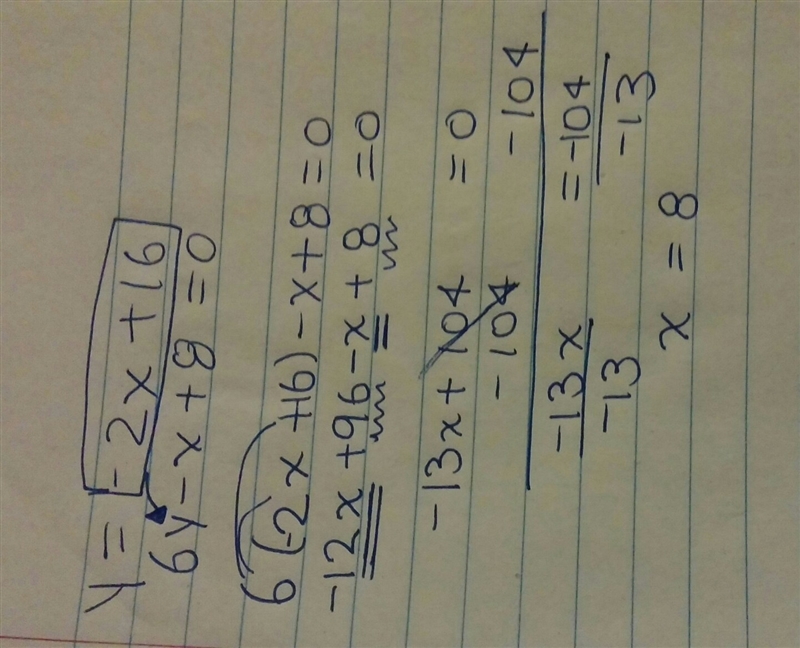 y = -2x + 16
6y - x + 8 = 0
6(-2x +16) - x + 8 = 0
-12x + 96 - x + 8 = 0
-13x + 104 = 0
- 104 - 104
-13x = -104
-13 -13
x = 8